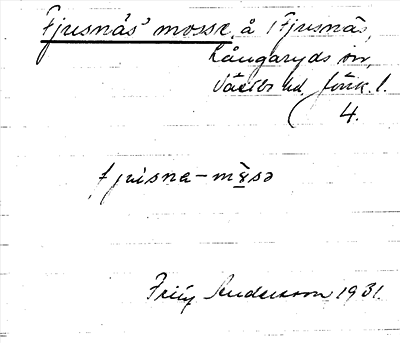 Fjusnäs' mosse, å Fjusnäs,
Långaryds sn,
Västbo hd. Jönk. l.
4.
fjusna-mɤsə
Fritz Andersson 1931.